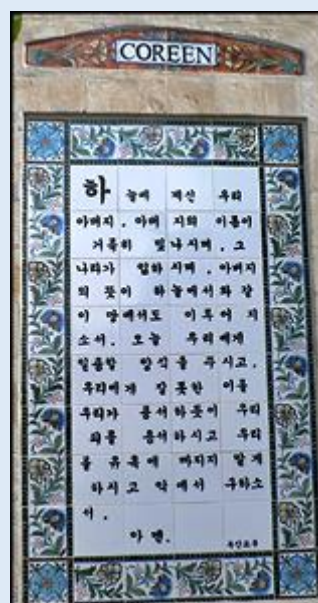 COREEN
하늘에 계신 우리
아버지, 아버지의 이름이
거룩히 빛나시며, 그
나라가 임하시며, 아버지
의 뜻이 하늘에서와 같
이 땅에서도 이루어지
소서. 오늘 우리에게
일용할 양식을 주시고,
우리에게 잘못한 이를
우리가 용서하듯이 우리
죄를 용서하시고 우리
를 유혹에 빠지지 않게
하시고 악에서 구하소
서.
아멘.